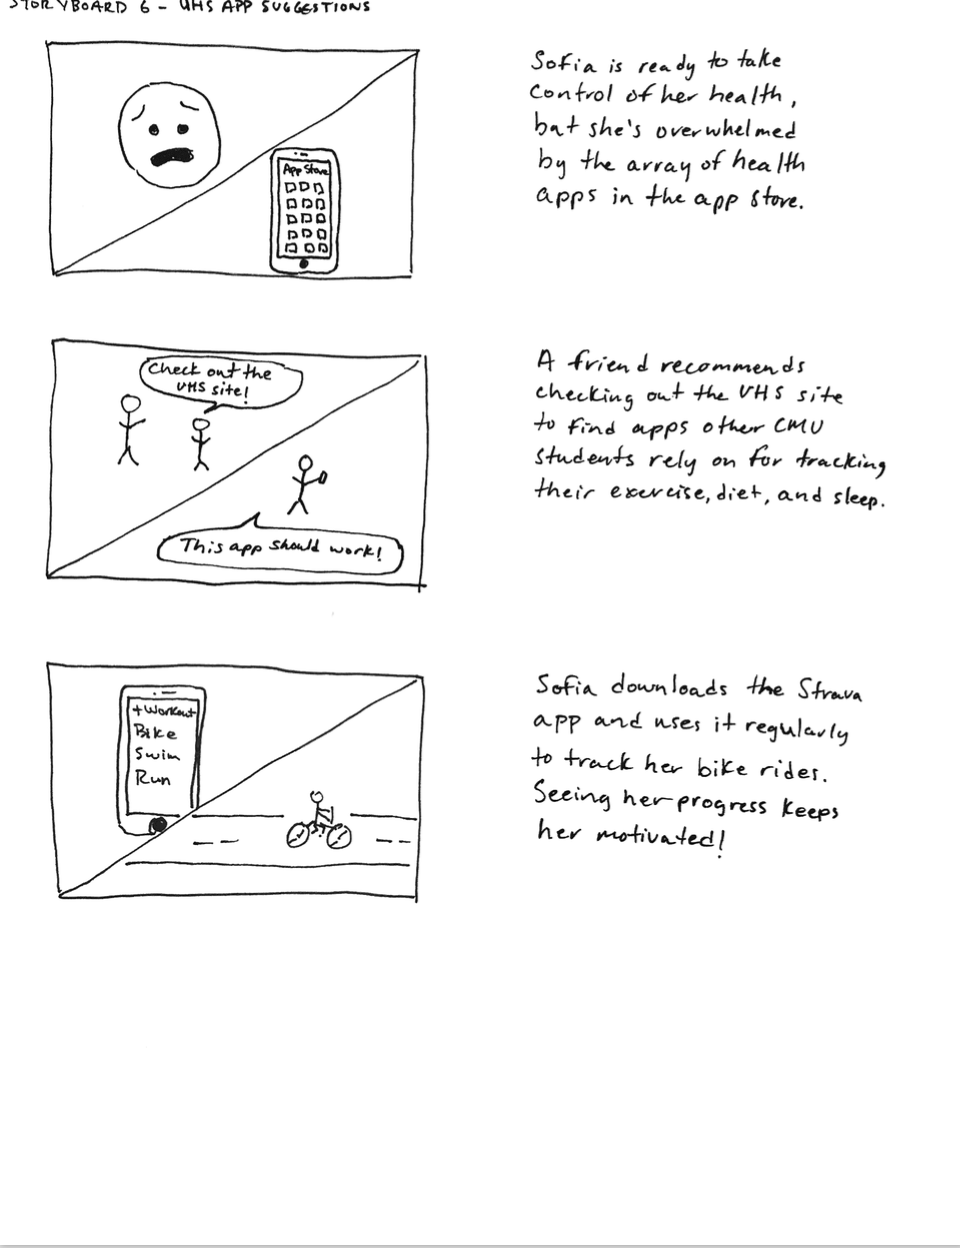 STORYBOARD 6 - UHS APP SUGGESTIONS
App Store
Sofia is ready to take
control of her health,
but she's overwhelmed
by the array of health
apps in the app store.
Check out the
UHS site!
This app should work!
A friend recommends
checking out the UHS site
to find apps other CMU
students rely on for tracking
their exercise, diet, and sleep.
+Workout
Bike
Swim
Run
Sofia downloads the Strava
app and uses it regularly
to track her bike rides.
Seeing her progress keeps
her motivated!